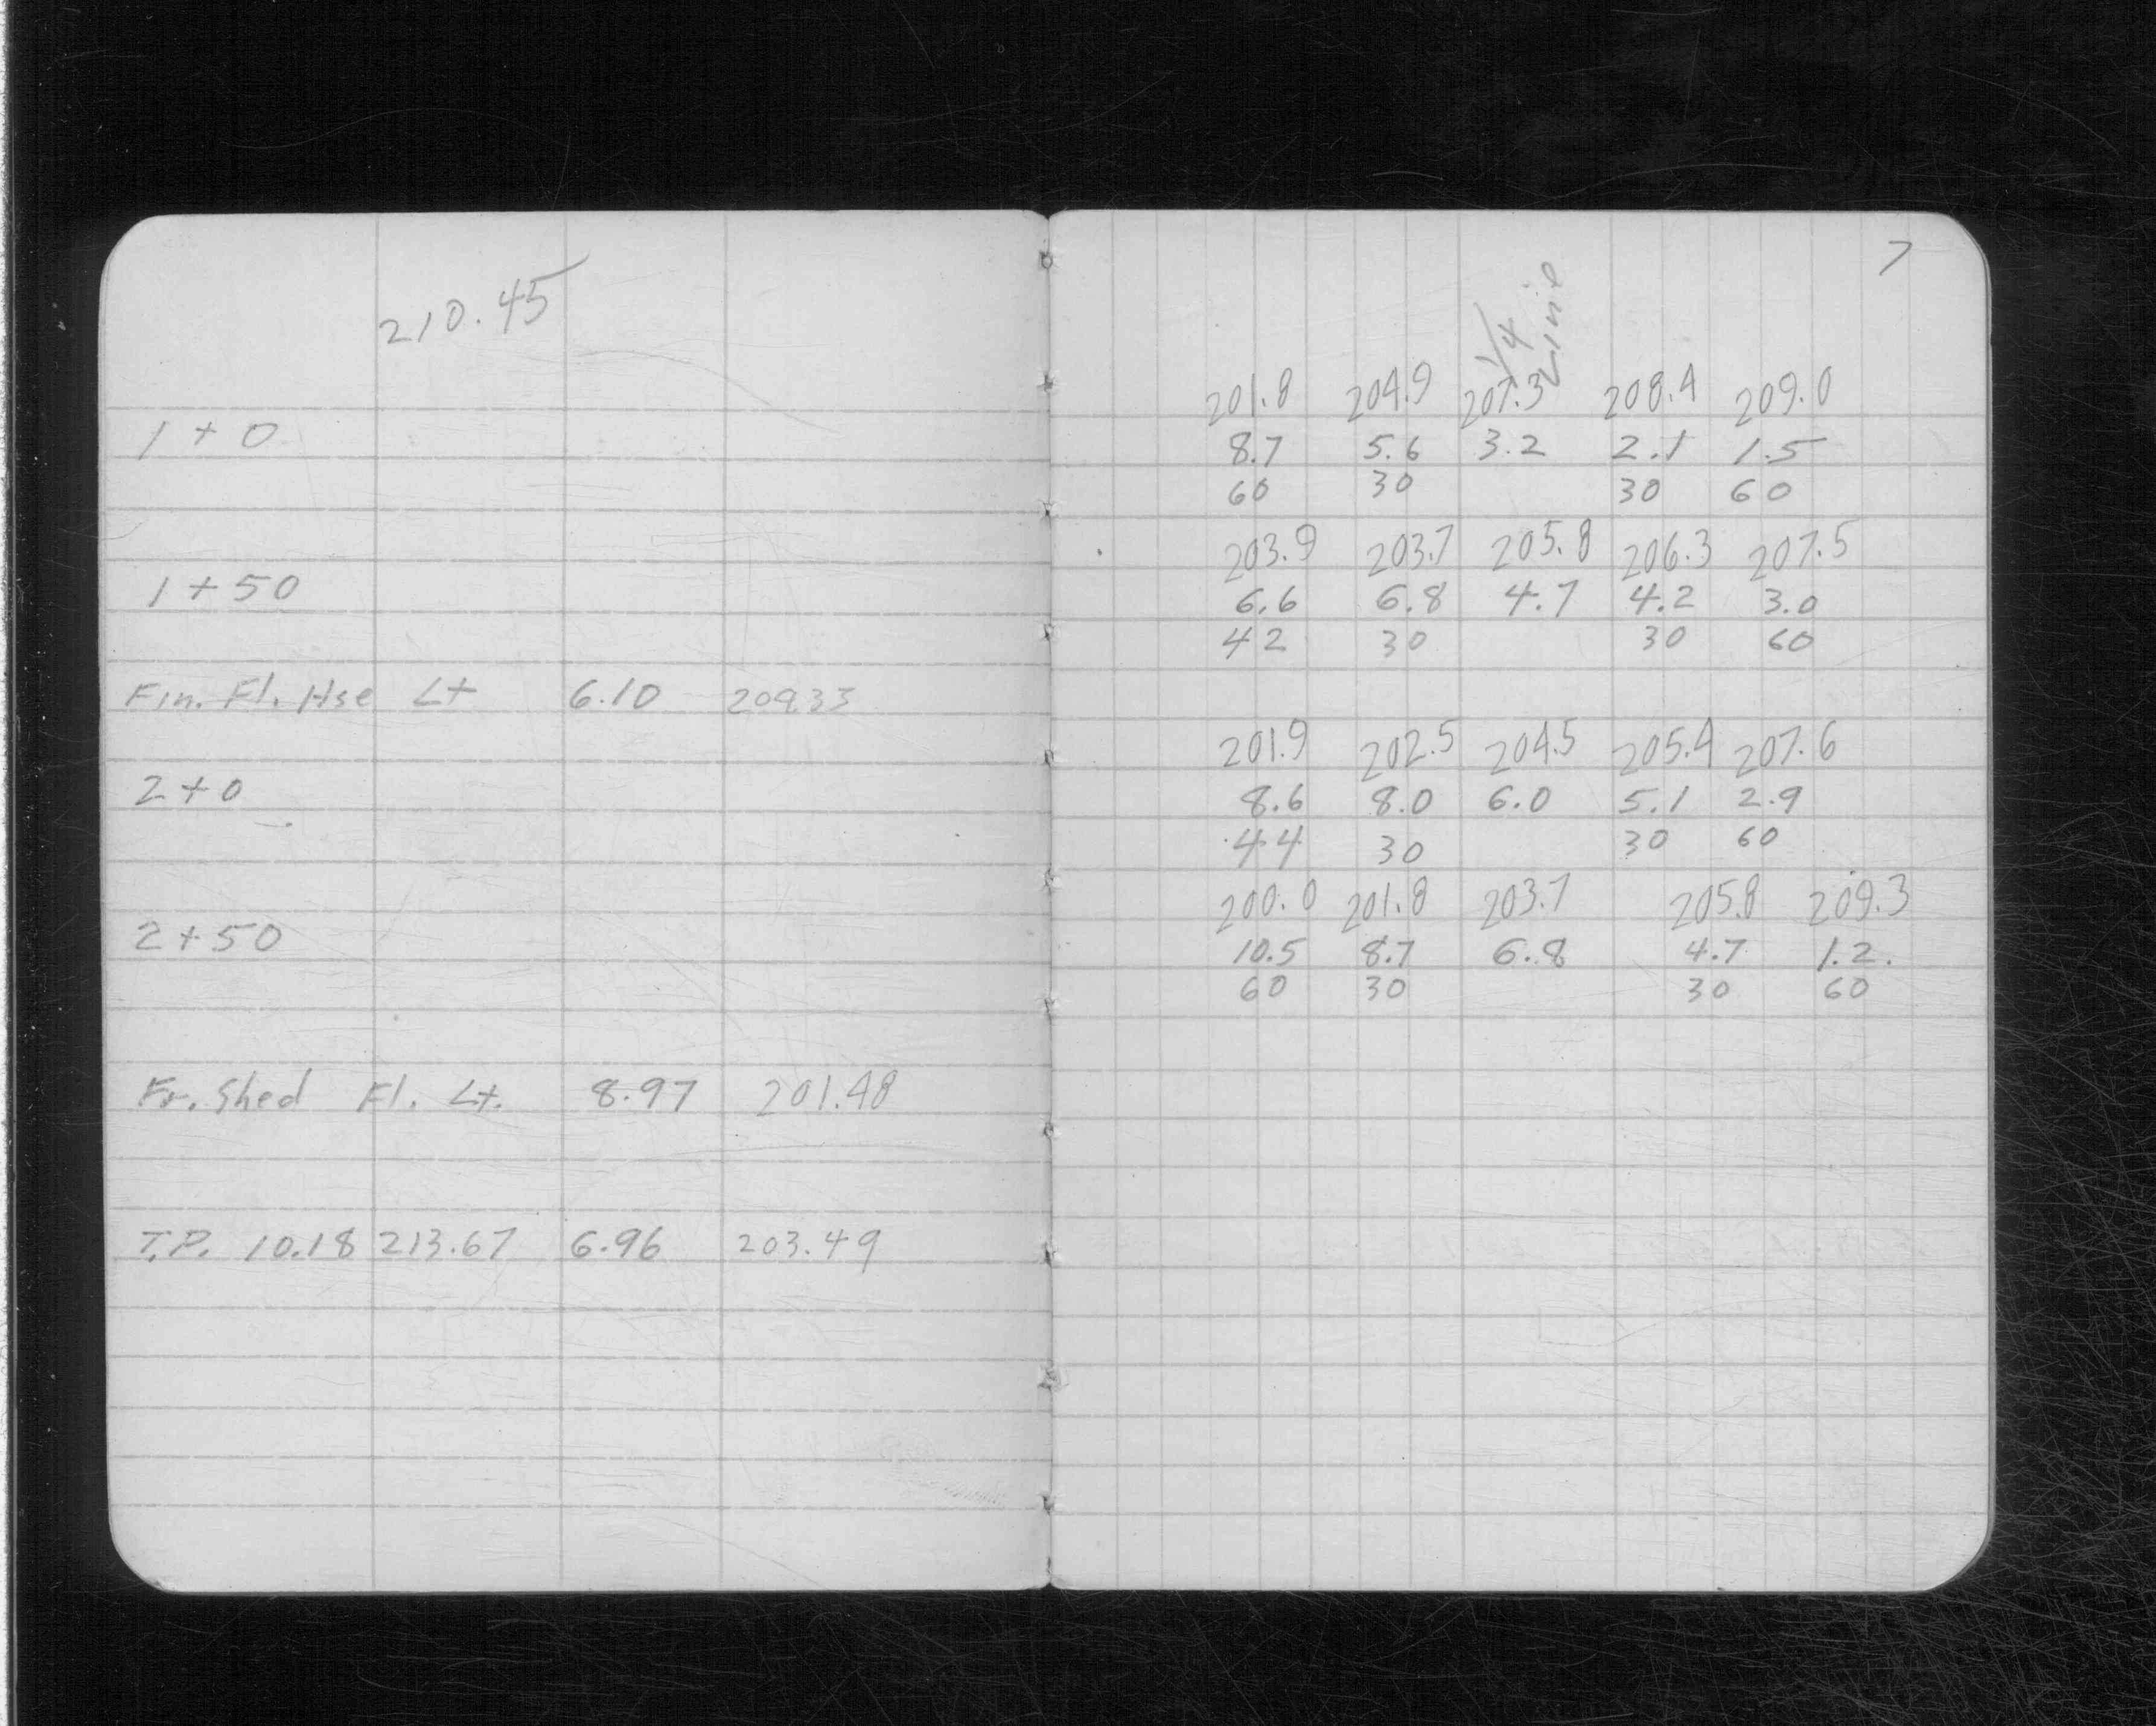 210.45
1 + 0
1 + 50
Fin. Fl. Hse Lt 6.10 204.35
2 + 0
2 + 50
Fr. Shed Fl. Lt. 8.97 201.48
T.P. 10.18 213.67 6.96 203.49
7
1/4 Line
201.8 204.9 207.3 208.4 209.0
8.7 5.6 3.2 2.1 1.5
60 30 30 60
203.9 203.7 205.8 206.3 207.5
6.6 6.8 4.7 4.2 3.0
42 30 30 60
201.9 202.5 204.5 205.4 207.6
8.6 8.0 6.0 5.1 2.9
44 30 30 60
200.0 201.8 203.7 205.8 209.3
10.5 8.7 6.8 4.7 1.2
60 30 30 60